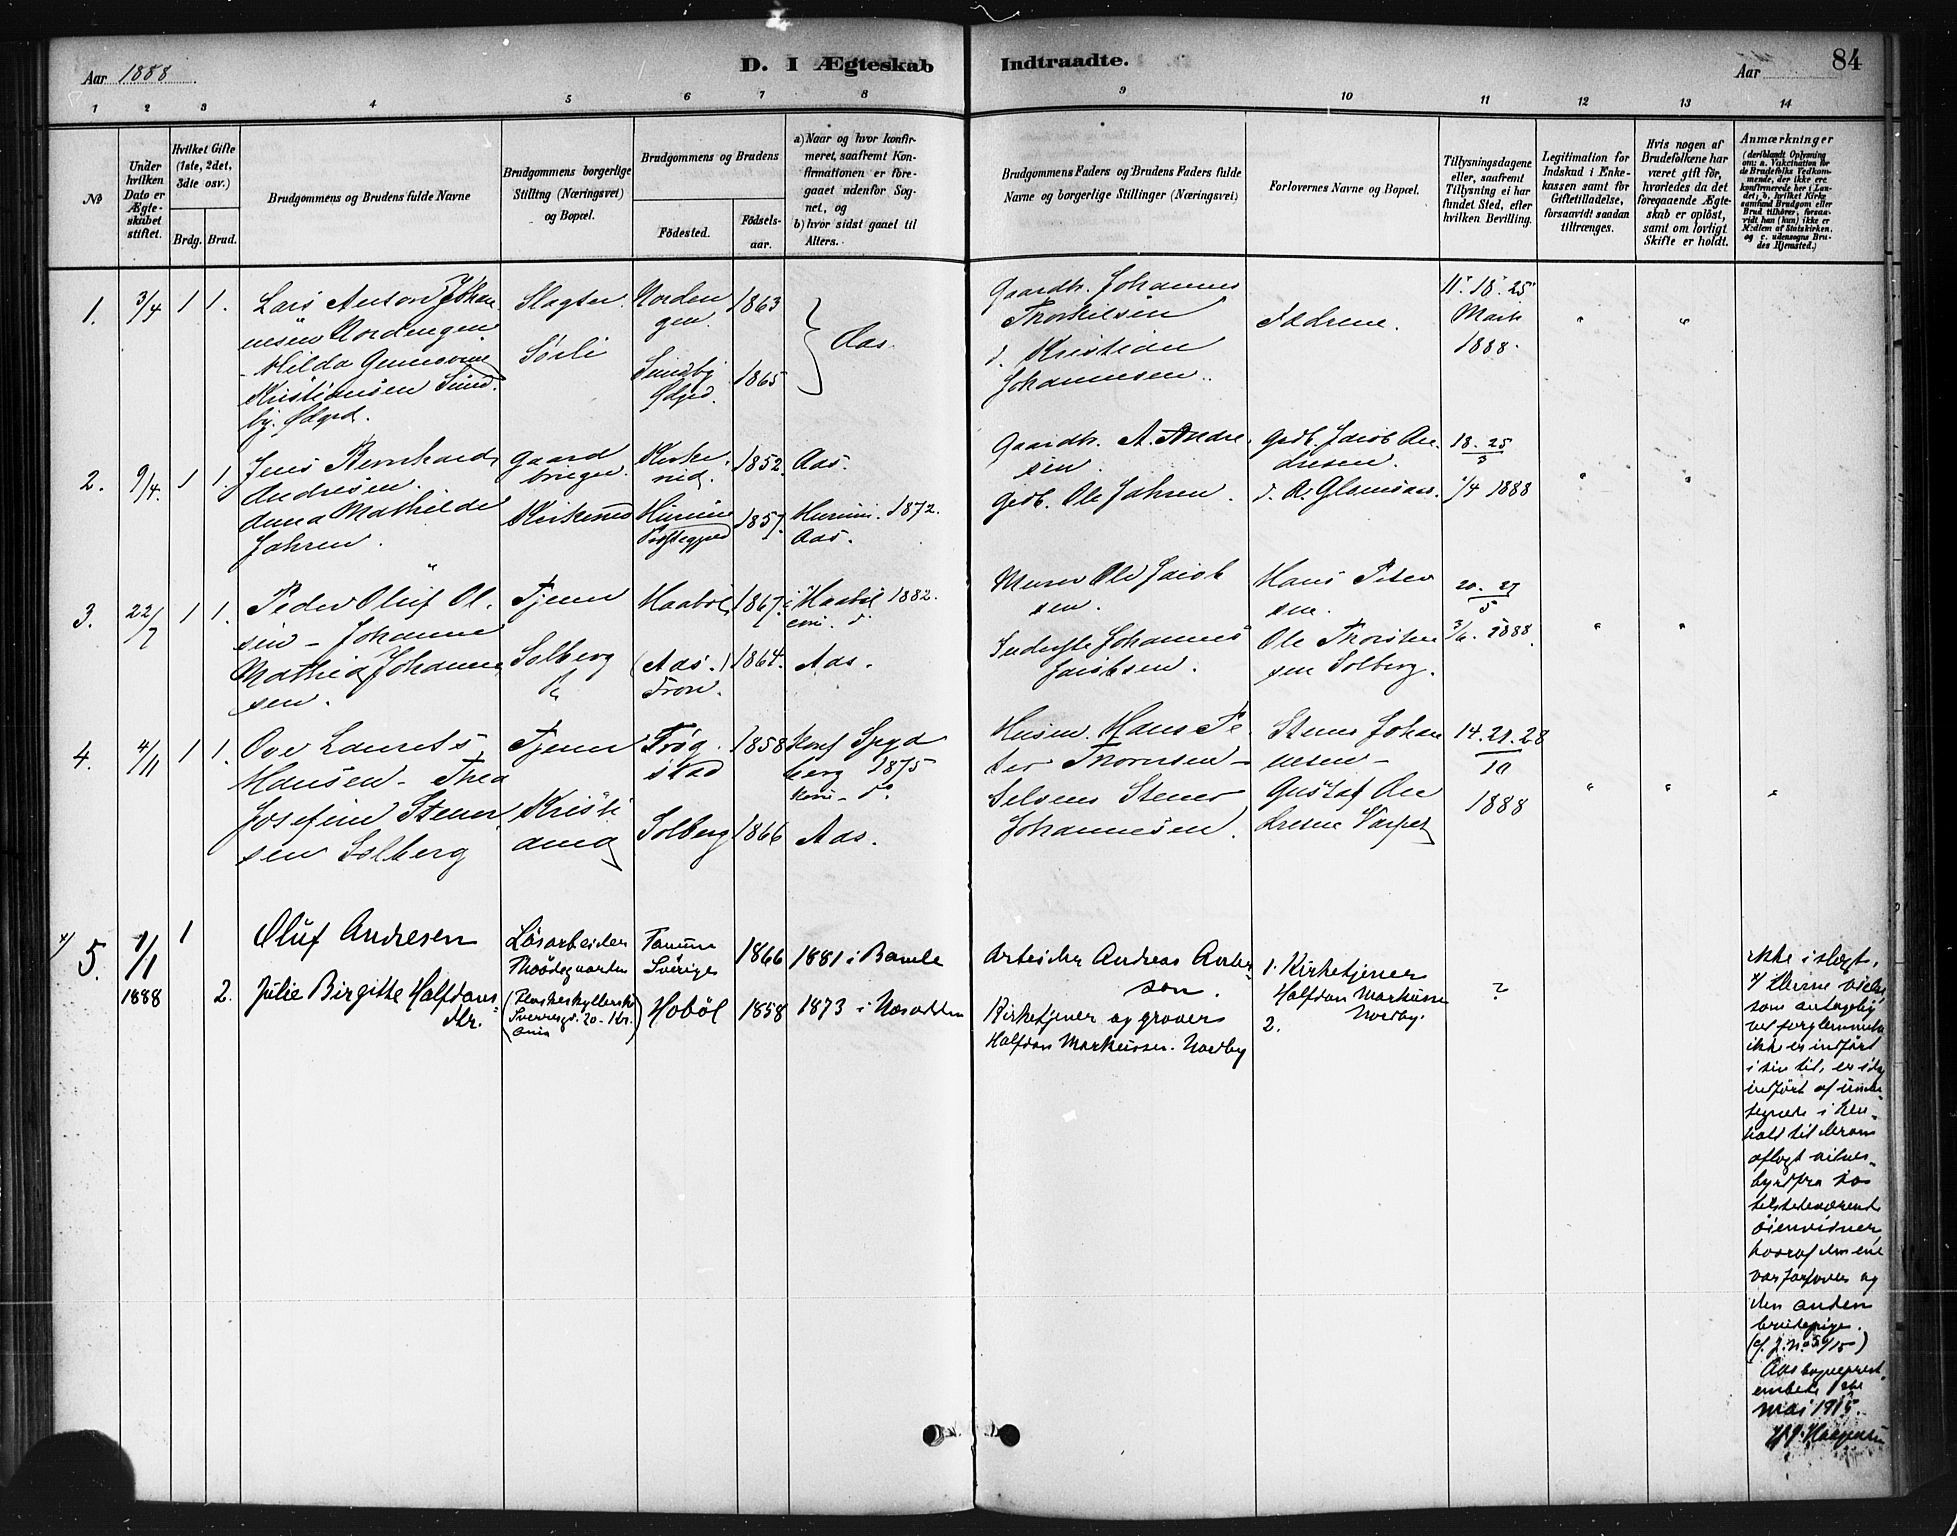 Aar 1888
D. I Ægteskab Indtraadte.
Aar
84
1 2 3 4 5 6 7 8 9 10 11 12 13 14
No
Under hvilken Dato er Ægteskabet stiftet.
Hvilket Gifte (1ste, 2det, 3dte osv.)
Brdg. Brud.
Brudgommens og Brudens fulde Navne
Brudgommens borgerlige Stilling (Næringsvei) og Bopæl.
Brudgommens og Brudens
Fødested.
Fødsels-aar.
a) Naar og hvor konfirmeret, saafremt Konfirmationen er foregaaet udenfor Sognet, og
b) hvor sidst gaaet til Alters.
Brudgommens Faders og Brudens Faders fulde Navne og borgerlige Stillinger (Næringsvei)
Forlovernes Navne og Bopæl.
Tillysningsdagene eller, saafremt Tillysning ei har fundet Sted, efter hvilken Bevilling.
Legitimation for Indskud i Enkekassen samt for Giftetilladelse, forsaavidt saadan tiltrænges.
Hvis nogen af Brudefolkene har været gift før, hvorledes da det foregaaende Ægteskab er opløst, samt om lovligt Skifte er holdt.
Anmærkninger
(deriblandt Oplysning om: a. Vakcination for de Brudefolks Vedkommende, der ikke ere konfirmerede her i Landet; b. hvilket Kirkesamfund Brudgom eller Brud tilhører, forsaavidt han (hun) ikke er Medlem af Statskirken, og c. udensogns Brudes Hjemsted.)
1. 3/4 1 1.
Lars Anton Johan
nesen Nordengen
Hilda
Kristiansen Sund
by. Ødegd.
Slagter.
Sørli
Norden
gen. 1863
Sundby
Ødgrd. 1865
Aas.
Gaardb. Johannes
Thorkilsen
d. Kristian
Johannesen.
11. 18. 25
Marts
1888.
2. 9/4. 1 1.
Jens Bernhard
Andresen.
Anna Mathilde
Jahren.
Gaard
bruger
Kirkerud
Kirke
rud. 1852.
1857.
Aas.
1872.
Aas.
Gaardb. A. Andre
sen.
Gdb. Ole Jahren.
Gdb. Jacob An
dresen.
18. 25
3
1/4 1888
3. 22/7 1 1.
Peder Oluf Ol
sen - Johanne
Mathea Johanne
sen.
Tjener
Solberg
Haabøl 1867.
(Aas.) 1864.
Tron.
i Haabøl 1882.
Aas.
Murer Ole Jacob
sen.
Johannes
Jacobsen.
Hans Peter
sen.
Ole Thorsten
sen Solberg.
20. 27
5
3/6. 1888.
4. 4/11 1 1.
Ove Laurets
Hansen - Thea
Josefine Stener
sen Solberg
Tjener
Kristi
ania
Trøg
stad 1858
Solberg 1866
Konf Spyd
berg 1875
Aas.
Husm. Hans Pe
ter Thomsen -
Selveier Stener
Johannesen.
Stener Johan
nesen -
Gustaf An
dresen
14. 21. 28
10
1888
5. 1/1 1888 1
Oluf Andresen
2. Julie Birgitte Halfdans
dtr.
Løsarbeider
Tanum
Sverige 1866
Hobøl 1858
1881 i Bamle
1873 i Nesodden
Arbeider Andreas Ander
son.
Kirketjener og graver
Halfdan Markussen. Nordby
1. Kirketjener
Halfdan Markussen
Nordby.
2.
?
ikke i slegt.
x/ Denne vielse
som antagelig
ved forglemmelse
ikke er indført
i sin tid, er idag
indført af under-
tegnede i hen-
hold til derom
aflagt vitnes-
byrd fra to
tilstedeværende
øienvidner,
hvoraf den ene
var forlover og
den anden
brudepige.
Aas sogneprest-
embede 1ste
mai 1915.